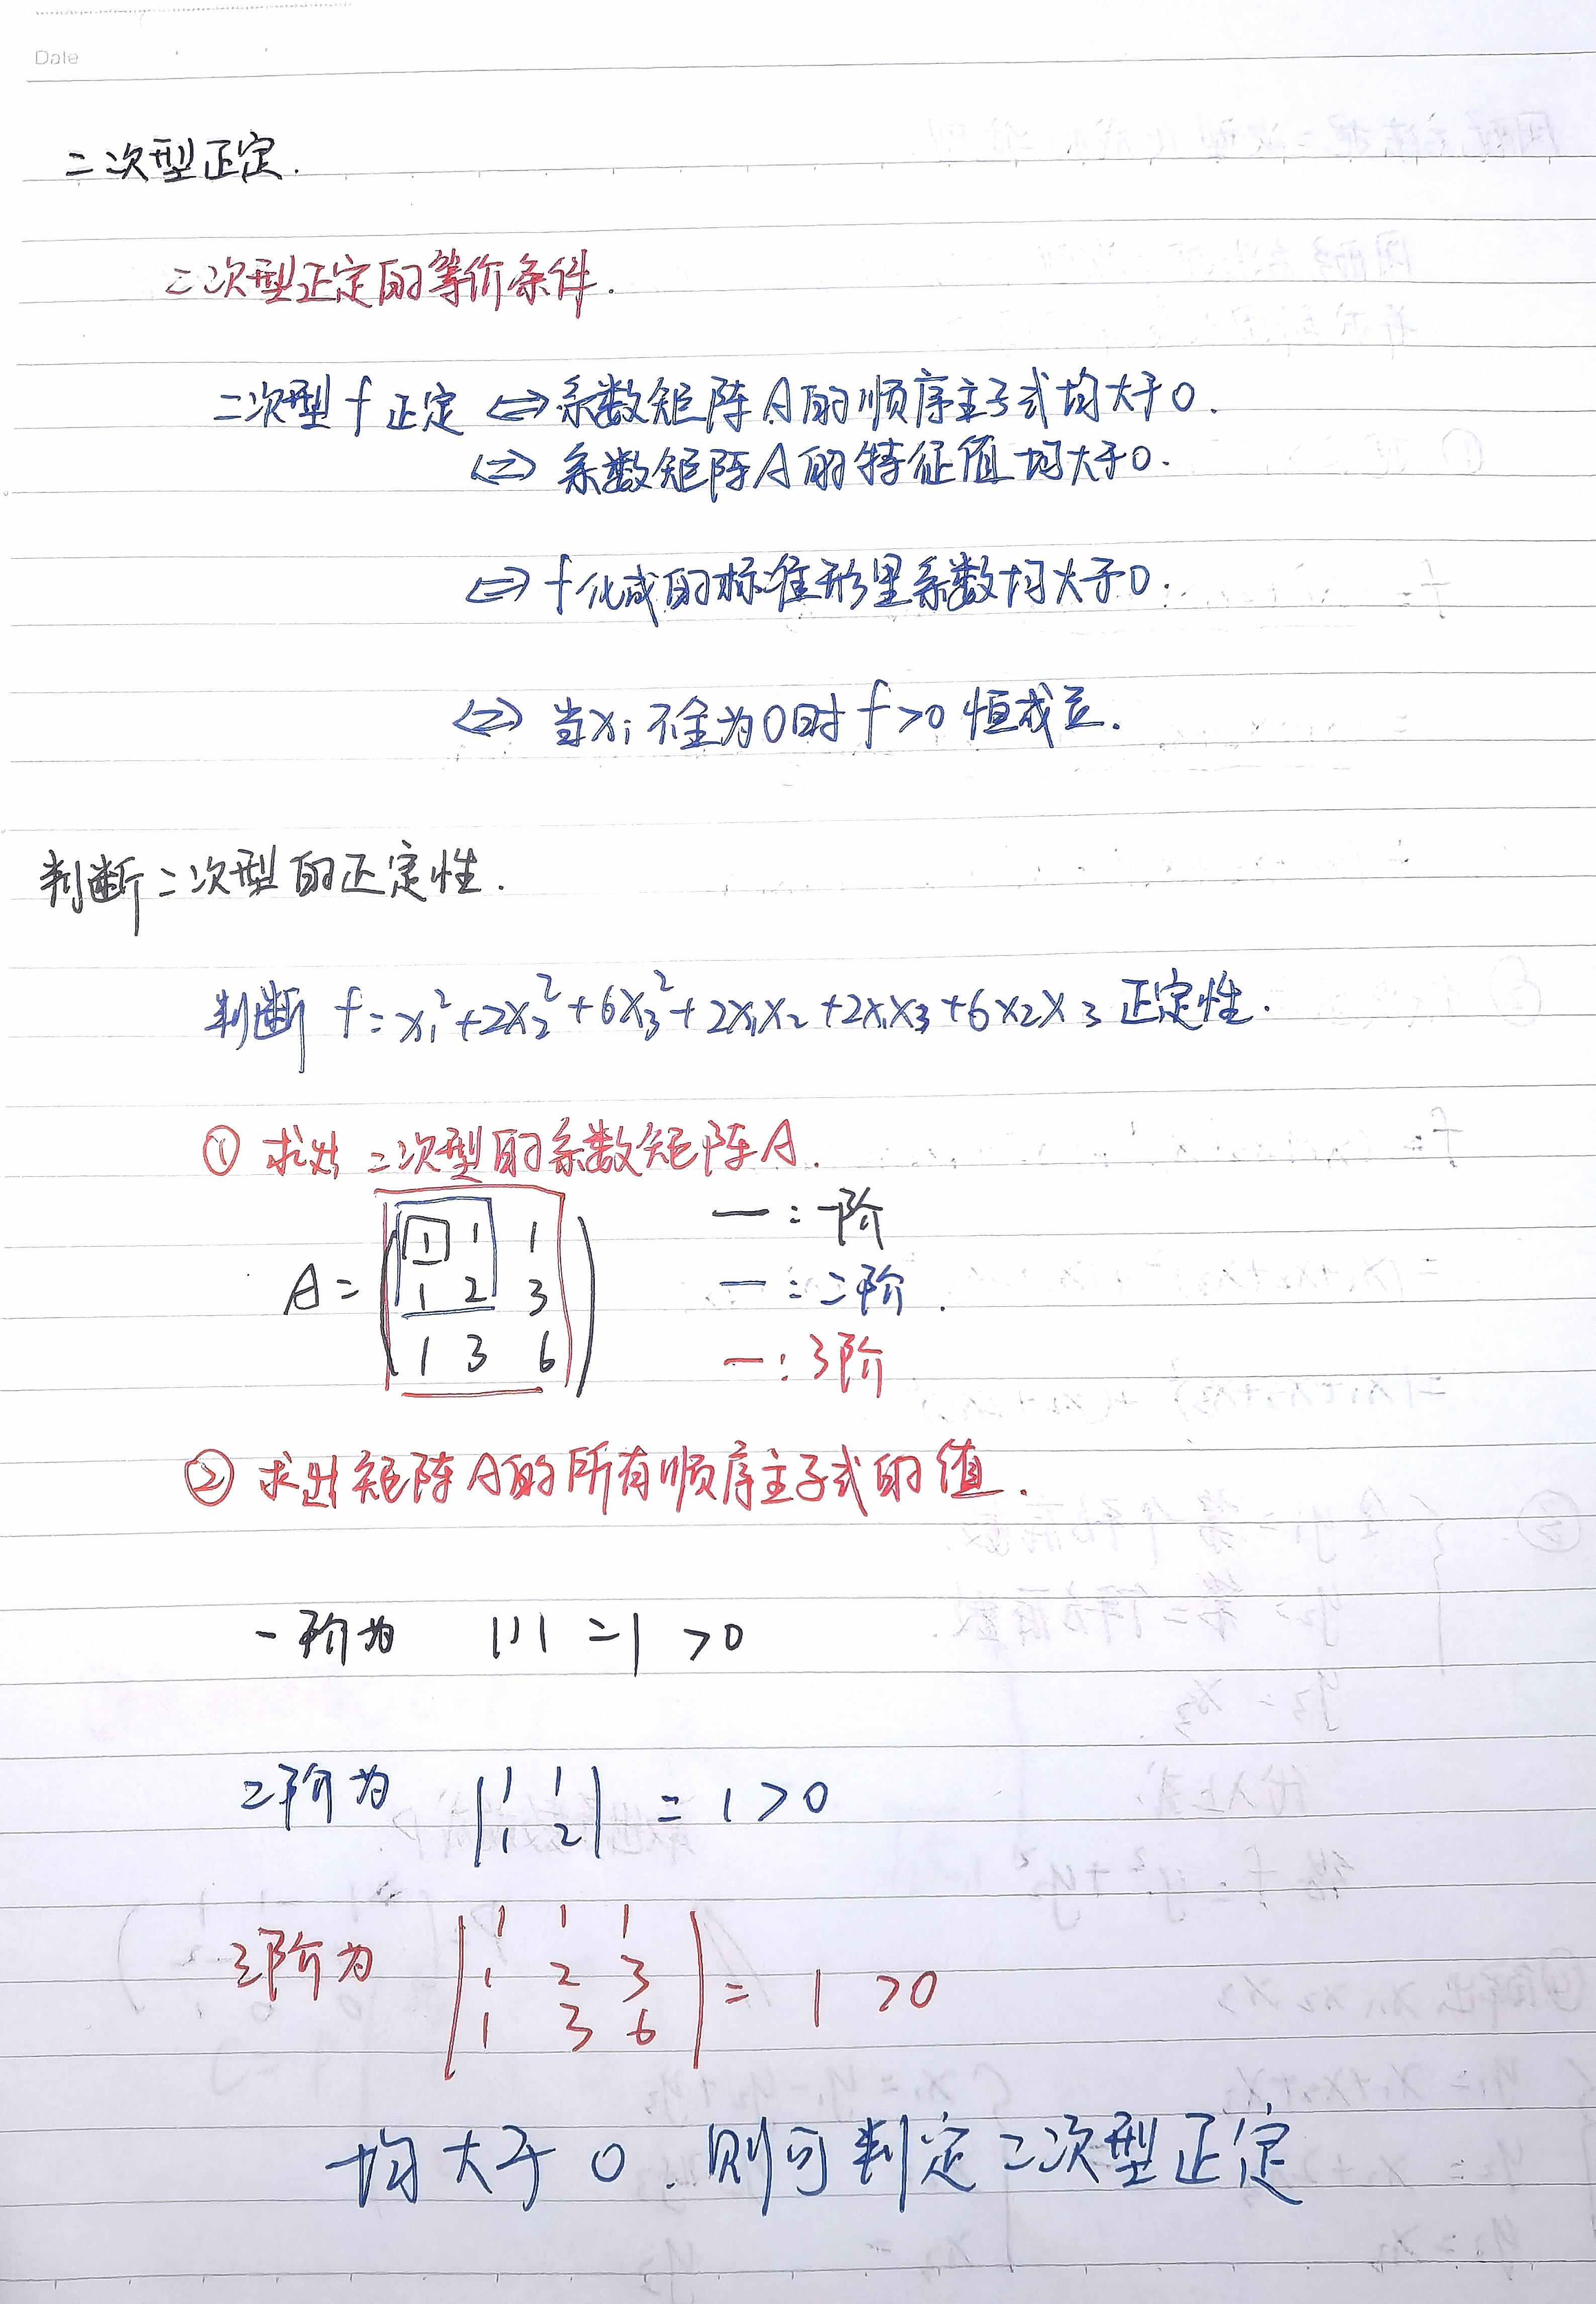 Date
二次型正定.
二次型正定的等价条件.
二次型 f 正定 ⇔ 系数矩阵 A 的顺序主子式均大于0.
⇔ 系数矩阵 A 的特征值均大于0.
⇔ f 化成的标准形里系数均大于0.
⇔ 当xi不全为0时 f>0 恒成立.
判断二次型的正定性.
判断 f=x₁²+2x₂²+6x₃²+2x₁x₂+2x₁x₃+6x₂x₃ 正定性.
① 求出二次型的系数矩阵A.
1 1 1 — : 一阶
A= 1 2 3 — : 二阶.
1 3 6 — : 3阶
② 求出矩阵A的所有顺序主子式的值.
一阶为 |1| =1 >0
二阶为 |1 1| = 1>0
|1 2|
三阶为 |1 1 1|
|1 2 3| = 1 >0
|1 3 6|
均大于0.则可判定二次型正定